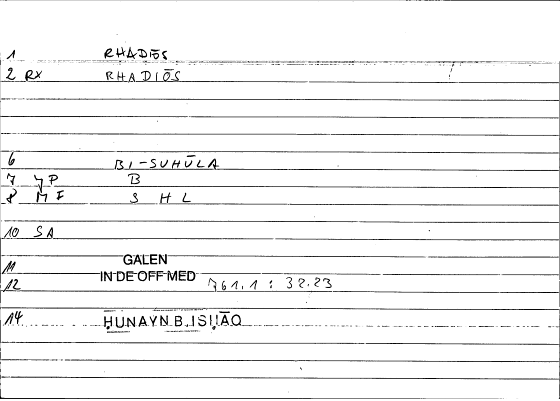 1 RHADIŌS
2 RX RHADIŌS
6 BI-SUHŪLA
7 YP B
8 MF S H L
10 SA
11 GALEN
12 IN DE OFF MED 761.1 : 32.23
14 ḤUNAYN B. ISḤĀQ